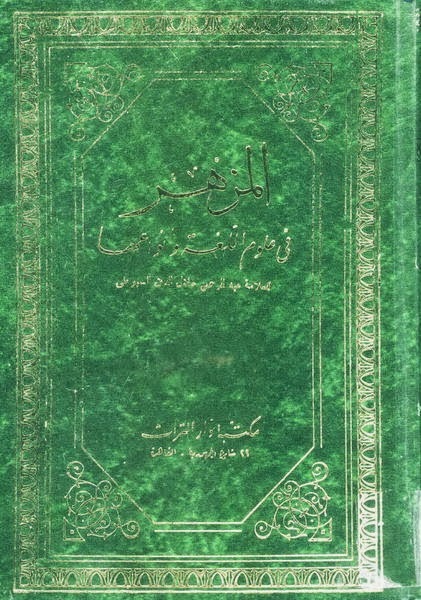 المزهر
في علوم اللغة وأنواعها
للعلامة عبد الرحمن جلال الدين السيوطي
مكتبة دار التراث
٢٢ شارع الجمهورية - القاهرة